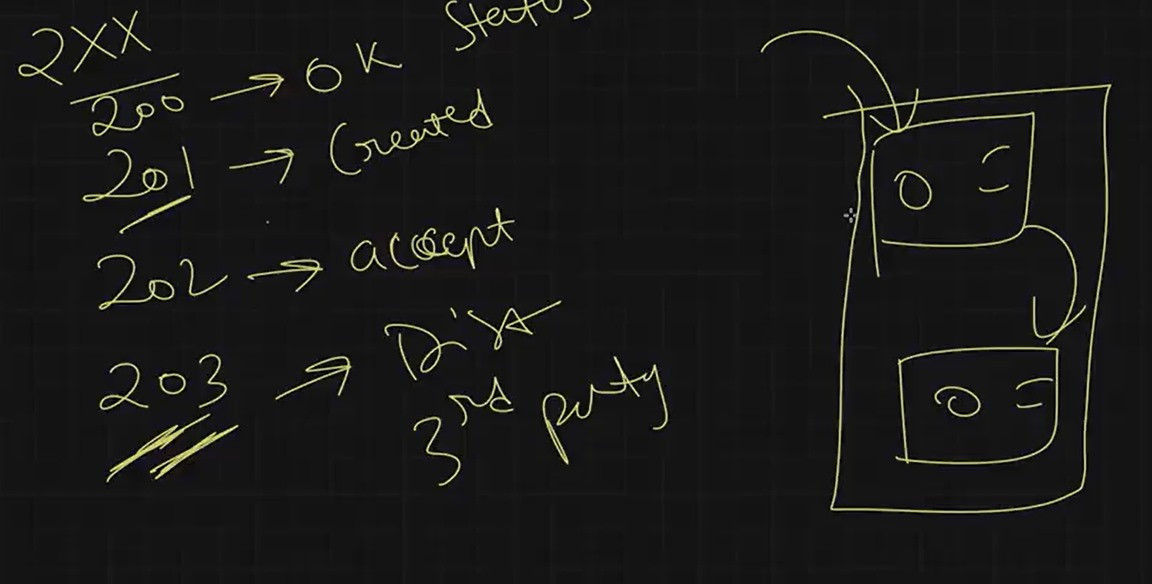 2XX Status
200 → OK
201 → Created
202 → accept
203 →
3rd party